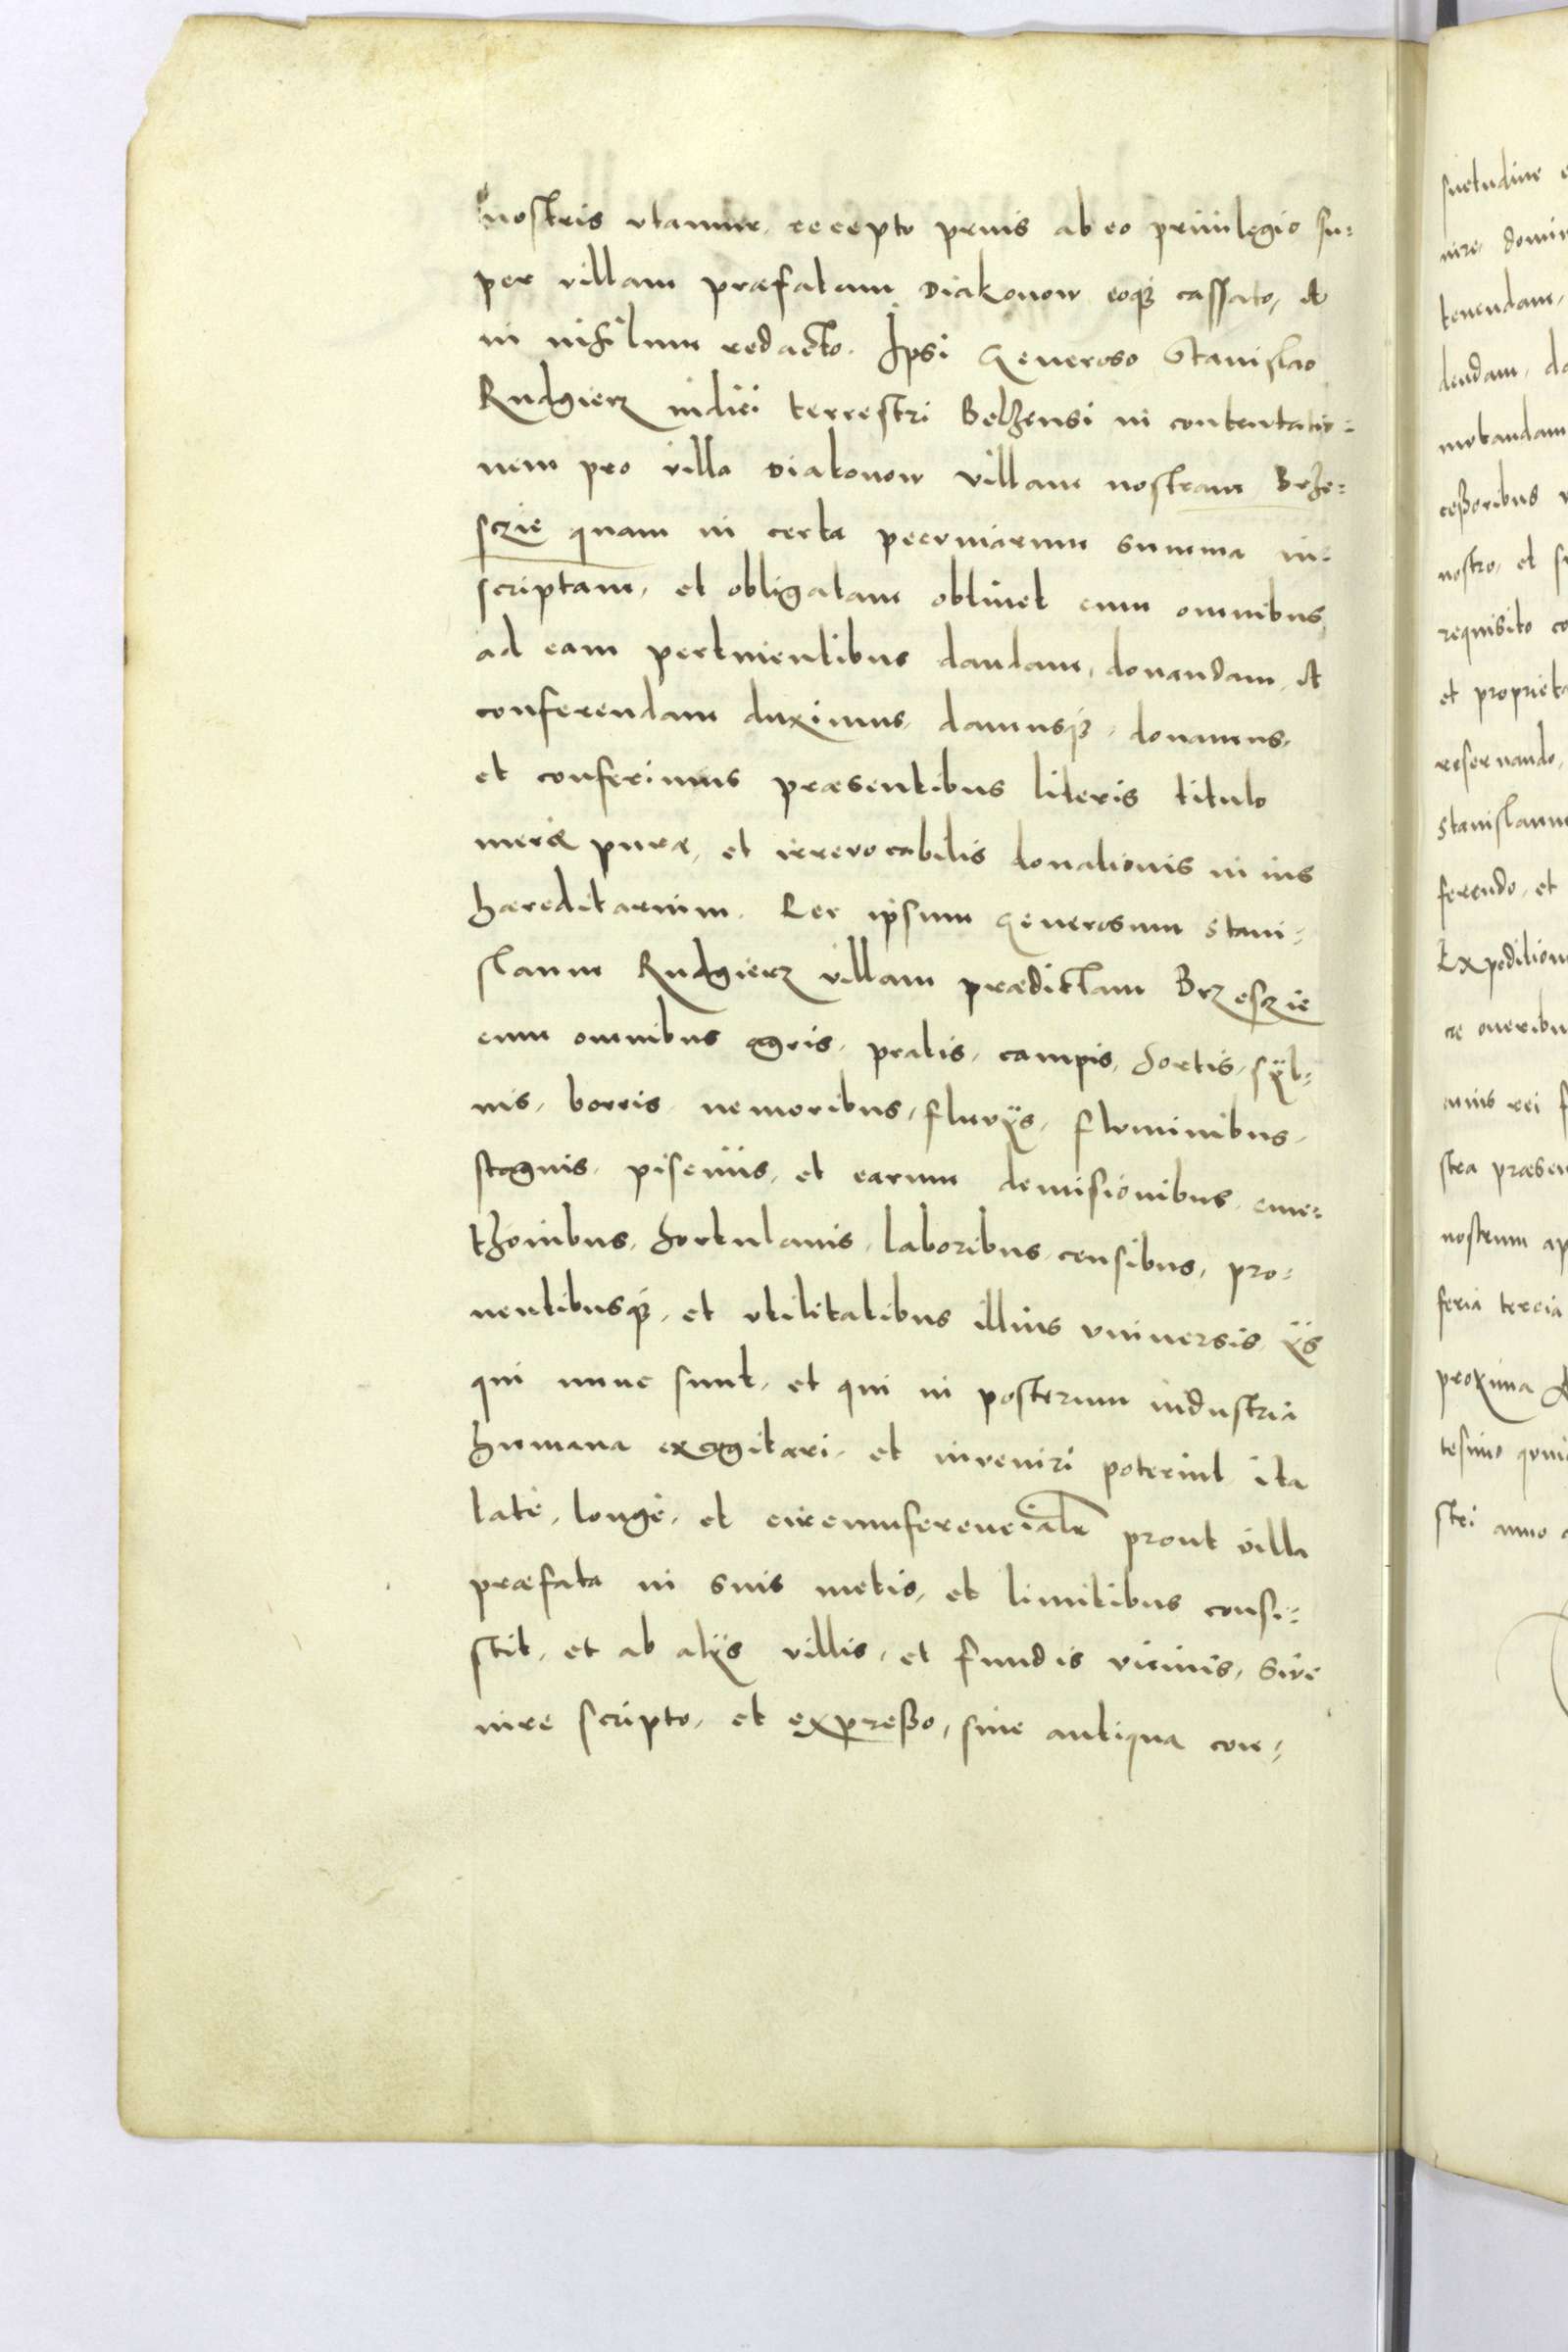 nostris vtamur, recepto prius ab eo priuilegio su=
per villam præfatam Diakonow eoq; cassato, et
in nihilum redacto. Ipsi Generoso Stanislao
Rudgierz iudici terrestri Belzensi in contentatio=
nem pro villa Diakonow villam nostram Brze=
sczie quam in certa pecuniarum summa in=
scriptam, et obligatam obtinet cum omnibus
ad eam pertinentibus dandam, donandam, et
conferendam duximus, damusq;, donamus,
et conferimus præsentibus literis titulo
meræ puræ, et irrevocabilis donationis in ius
hæreditarium. Per ipsum Generosum Stani=
slaum Rudgierz villam prædictam Brzesczie
cum omnibus agris, pratis, campis, hortis, syl=
uis, borris, nemoribus, fluvijs, fluminibus,
stagnis, piscinis, et earum demisionibus, cme=
thonibus, hortulanis, laboribus, censibus, pro=
uentibusq;, et vtilitatibus illius vniuersis, ijs
qui nunc sunt, et qui in posterum industria
humana excogitari, et inveniri poterint, ita
late, longe, et circumferencialr prout villa
præfata in suis metis, et limitibus consi=
stit, et ab alijs villis, et fundis vicinis, sive
iure scripto, et expreßo, siue antiqua con=
suetudine
iure, domin
tenendam,
dendam, do
mutandam
ceßoribus
nostro, et su
requisito co
et proprieta
reseruando,
Stanislaum
ferendo, et
Expedition
re oneribu
cuius rei f
stra præsen
nostrum ap
feria tercia
proxima
tesimo quin
stri anno